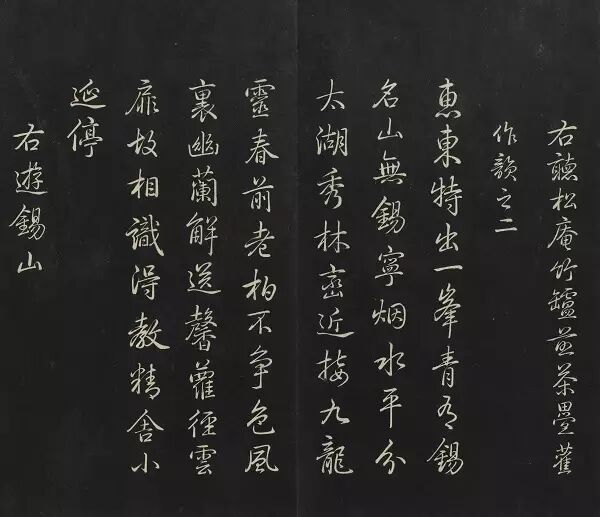 右聽松庵竹罏煎茶疊舊
作韻之二
惠東特出一峯青有錫
名山無錫寧烟水平分
太湖秀林巒近接九龍
靈春前老柏不爭色風
裏幽蘭解送馨蘿徑雲
扉故相識得教精舍小
延停
右遊錫山